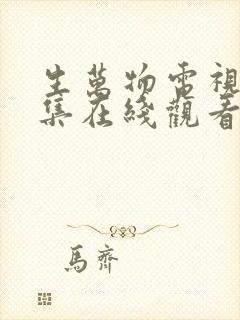 生萬物電視
集在綫觀看
馬齊